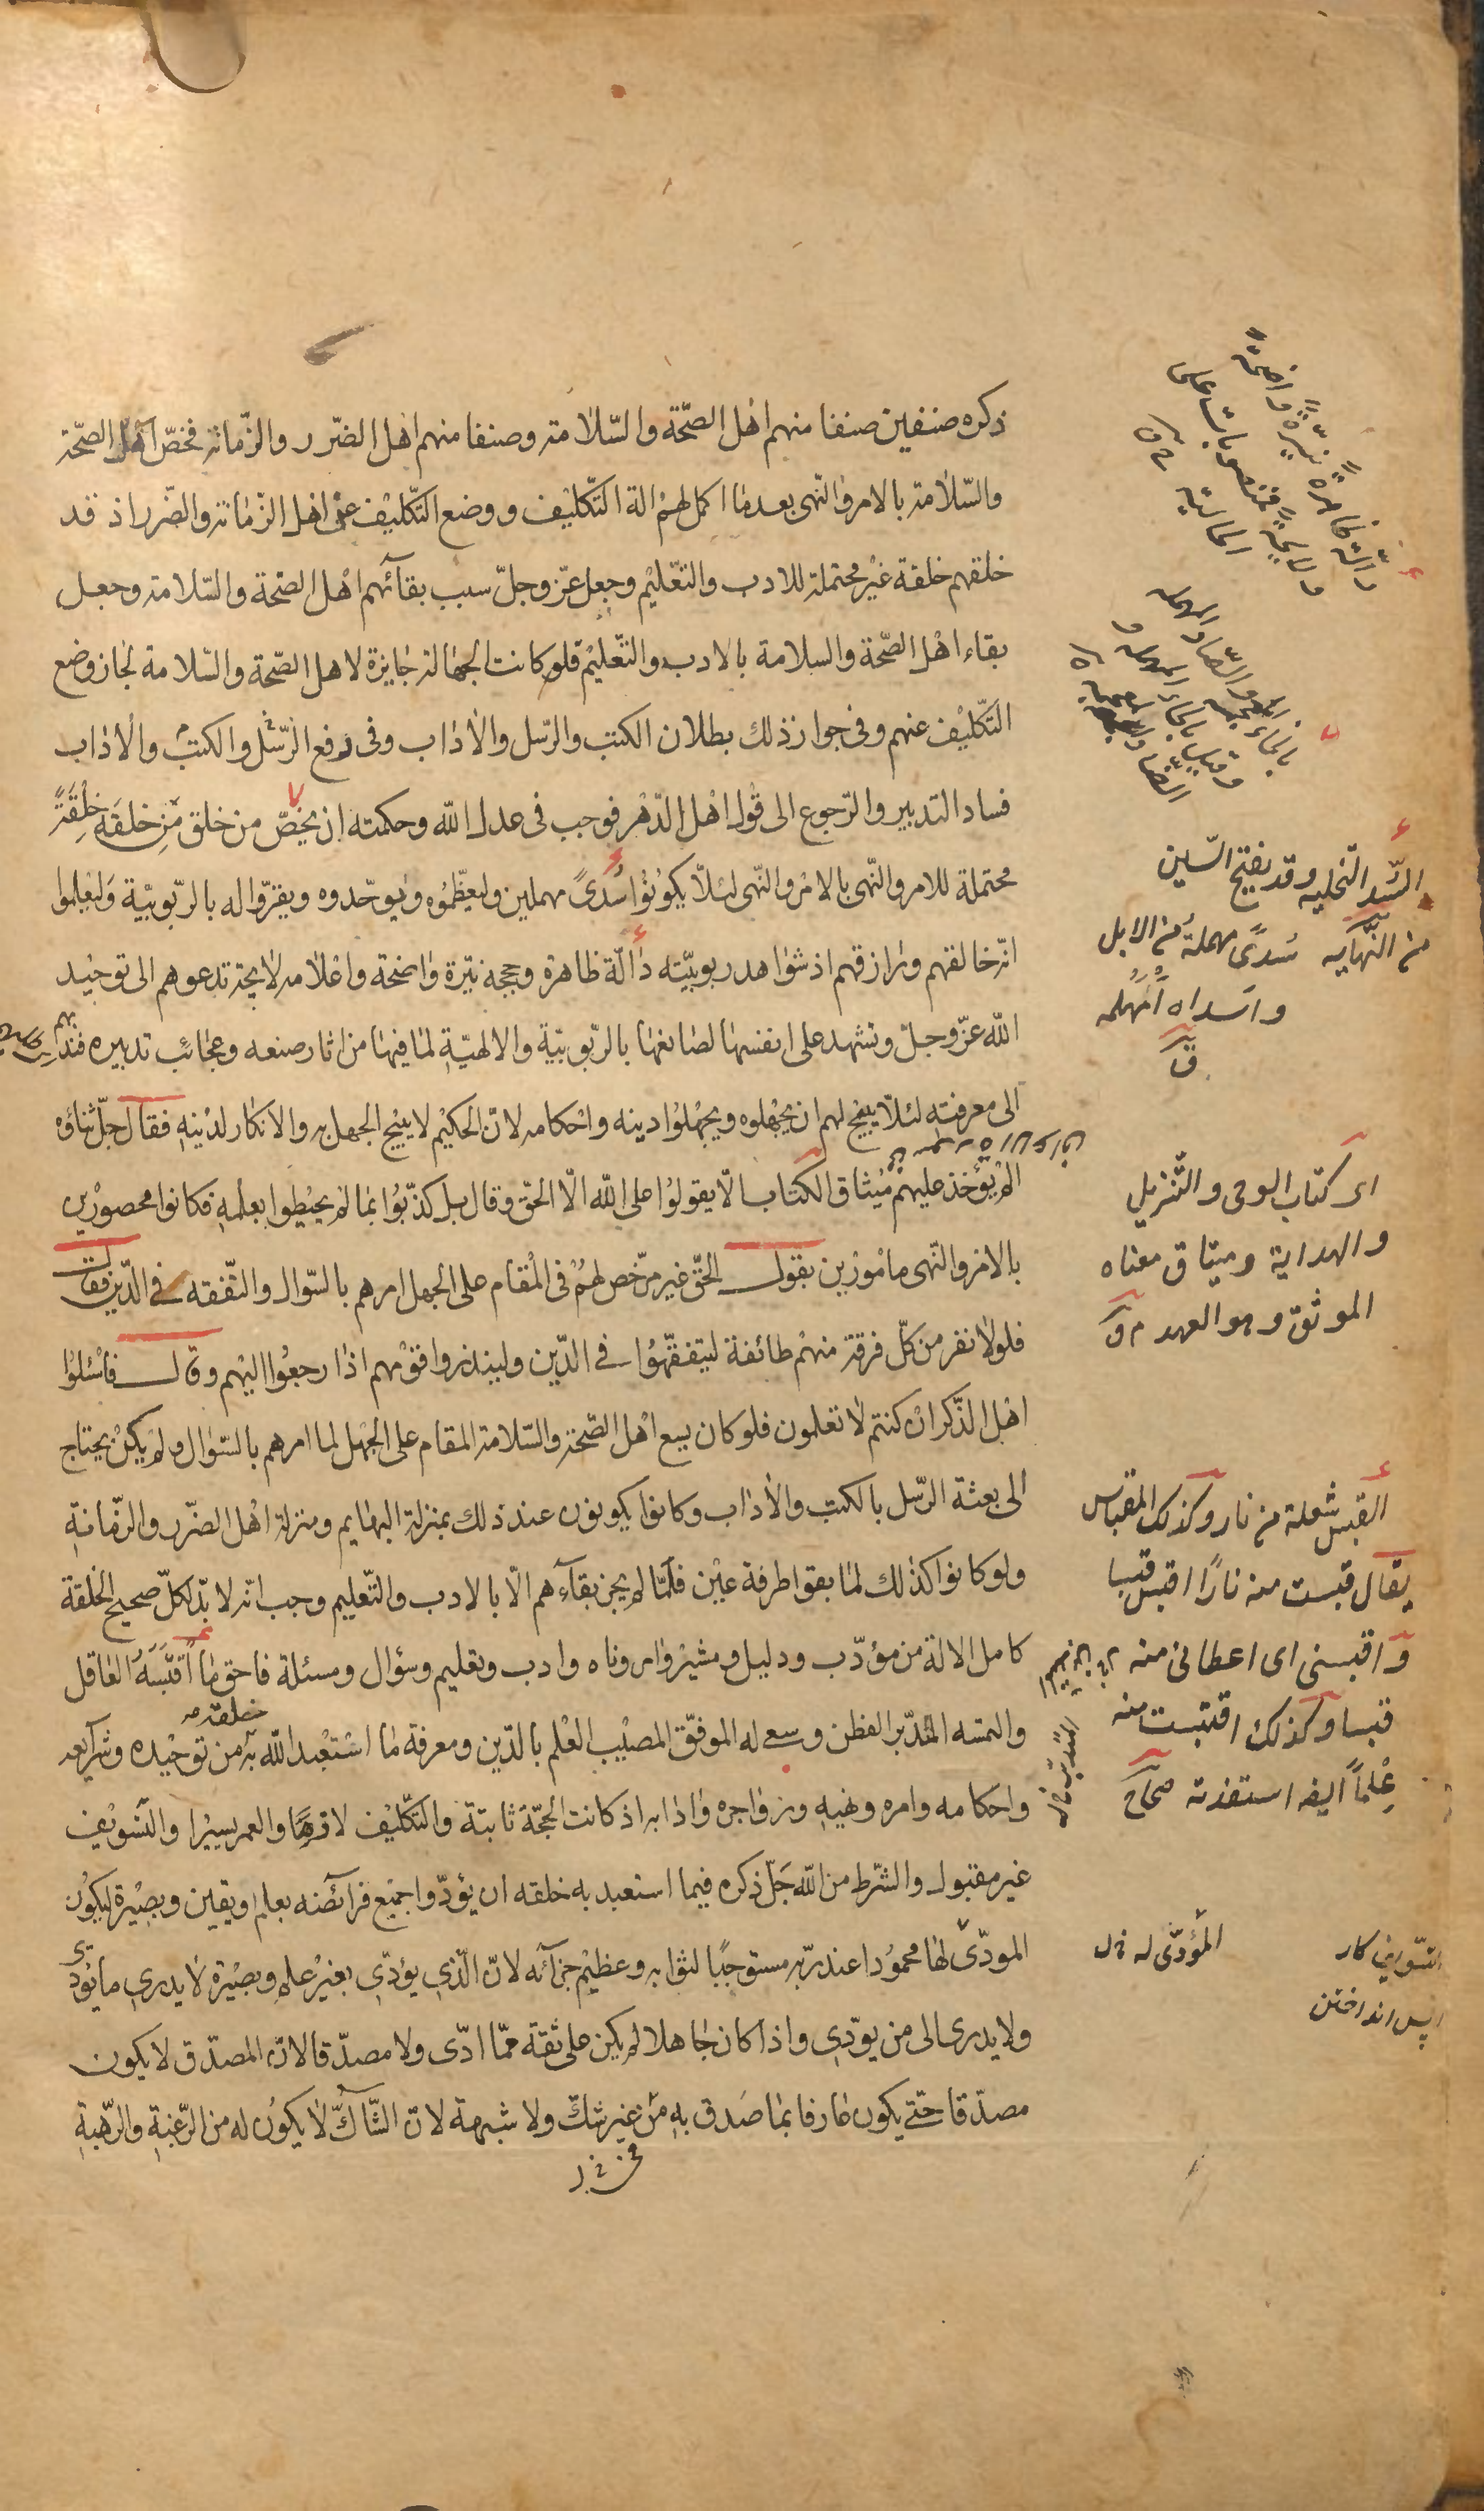 ذكره صنفين صنفا منهم اهل الصّحّة والسّلامة وصنفا منهم اهل الضّرر والزّمانة فخصّ اهل الصّحّة
والسّلامة بالامر والنّهى بعد ما اكمل لهم الة التّكليف ووضع التّكليف عن اهل الزّمانة والضّرر اذ قد
خلقهم خلقة غير محتملة للادب والتّعليم وجعل عزّ وجلّ سبب بقآئهم اهل الصّحة والسّلامة وجعل
بقاء اهل الصّحّة والسلامة بالادب والتّعليم فلو كانت الجهالة جايزة لاهل الصّحّة والسّلامة لجاز وضع
التّكليف عنهم وفى جواز ذلك بطلان الكتب والرّسل والاداب وفى رفع الرّسل والكتب والاداب
فساد التدبير والرّجوع الى قول اهل الدّهر فوجب فى عدل اللّه وحكمته ان يخصّ من خلق من خلقه خِلْقَةً
محتملة للامر والنّهى بالامر والنّهى لئلّا يكونوا سُدىً مهملين وليعظّموه ويوحّدوه ويقرّوا له بالرّبوبيّة وليعلموا
انّه خالقهم ورازقهم اذ شواهد ربوبيّته دالّة ظاهرة وحججه نيّرة واضحة واعلامه لايحة تدعوهم الى توحيد
اللّه عزّ وجلّ وتشهد على انفسها لصانعها بالرّبوبيّة والالهيّة لما فيها من اثار صنعه وعجائب تدبيره فندبهم
الى معرفته لئلّا يبيح لهم ان يجهلوه ويجهلوا دينه واحكامه لانّ الحكيم لا يبيح الجهل به والانكار لدينه فقال جلّ ثناؤه
الم يؤخذ عليهم ميثاق الكتاب الّا يقولوا على اللّه الّا الحقّ وقال بل كذّبوا بما لم يحيطوا بعلمه فكانوا محصورين
بالامر والنّهى مأمورين بقول الحقّ غير مرخّص لهم فى المقام على الجهل امرهم بالسّؤال والتّفقه فى الدّين فقال
فلولا نفر من كلّ فرقة منهم طائفة ليتفقّهوا فى الدّين ولينذروا قومهم اذا رجعوا اليهم وقال فاسئلوا
اهل الذّكر ان كنتم لا تعلمون فلو كان يسع اهل الصّحّة والسّلامة المقام على الجهل لما امرهم بالسّؤال ولم يكن يحتاج
الى بعثة الرّسل بالكتب والاداب وكانوا يكونون عند ذلك بمنزلة البهايم ومنزلة اهل الضّرر والزّمانة
ولو كانوا كذلك لما بقوا طرفة عين فلمّا لم يجز بقآءهم الّا بالادب والتّعليم وجب انّه لا بدّ لكلّ صحيح الخلقة
كامل الالة من مؤدّب ودليل ومشير وامر وناه وادب وتعليم وسؤال ومسئلة فاحق ما اقتبسه العاقل
والتمسه المتدبّر الفطن وسعى له الموفّق المصيب العلم بالدّين ومعرفة ما استعبد اللّه به خلقه من توحيده وشرآيعه
واحكامه وامره ونهيه وزواجره وادابه اذ كانت الحجّة ثابتة والتّكليف لازما والعمر يسيرا والتّسويف
غير مقبول والشّرط من اللّه جَلّ ذكره فيما استعبد به خلقه ان يؤدّوا جميع فرائضه بعلم ويقين وبصيرة ليكون
المودّى لها محمودا عند ربّه مستوجبًا لثوابه وعظيم جزآئه لانّ الّذى يؤدّى بغير علم وبصيرة لا يدرى ما يؤدّى
ولا يدرى الى من يودّى واذا كان جاهلا لم يكن على ثقة ممّا ادّى ولا مصدّقا لانّ المصدّق لا يكون
مصدّقا حتّى يكون عارفا بما صَدق به من غير شكّ ولا شبهة لانّ الشّاكّ لا يكون له من الرّغبة والرّهبة
دالّة ظاهرةً نيّرةً واضحةً
ولايحةً منصوبات على
الحالية
بالخاء المعجمة والصّاد المهملة
وقيل بالحاء المهملة و
الضّاد المعجمة
السّد التّخليه وقد يفتح السّين
من النّهايه سُدىً مهملةً من الابل
واسداه اهمله
ق
اى كتاب الوحى والتّنزيل
والهداية وميثاق معناه
الموثق وهو العهد
القبس شعلة من نار وكذلك المقباس
يقال قبست منه نارًا اقبس قبسا
واقبسنى اى اعطانى منه
قبسا وكذلك اقتبست منه
عِلْماً ايضا استفدته صحاح
المؤدّى له خ ل
التّسويف كار
واپس انداختن